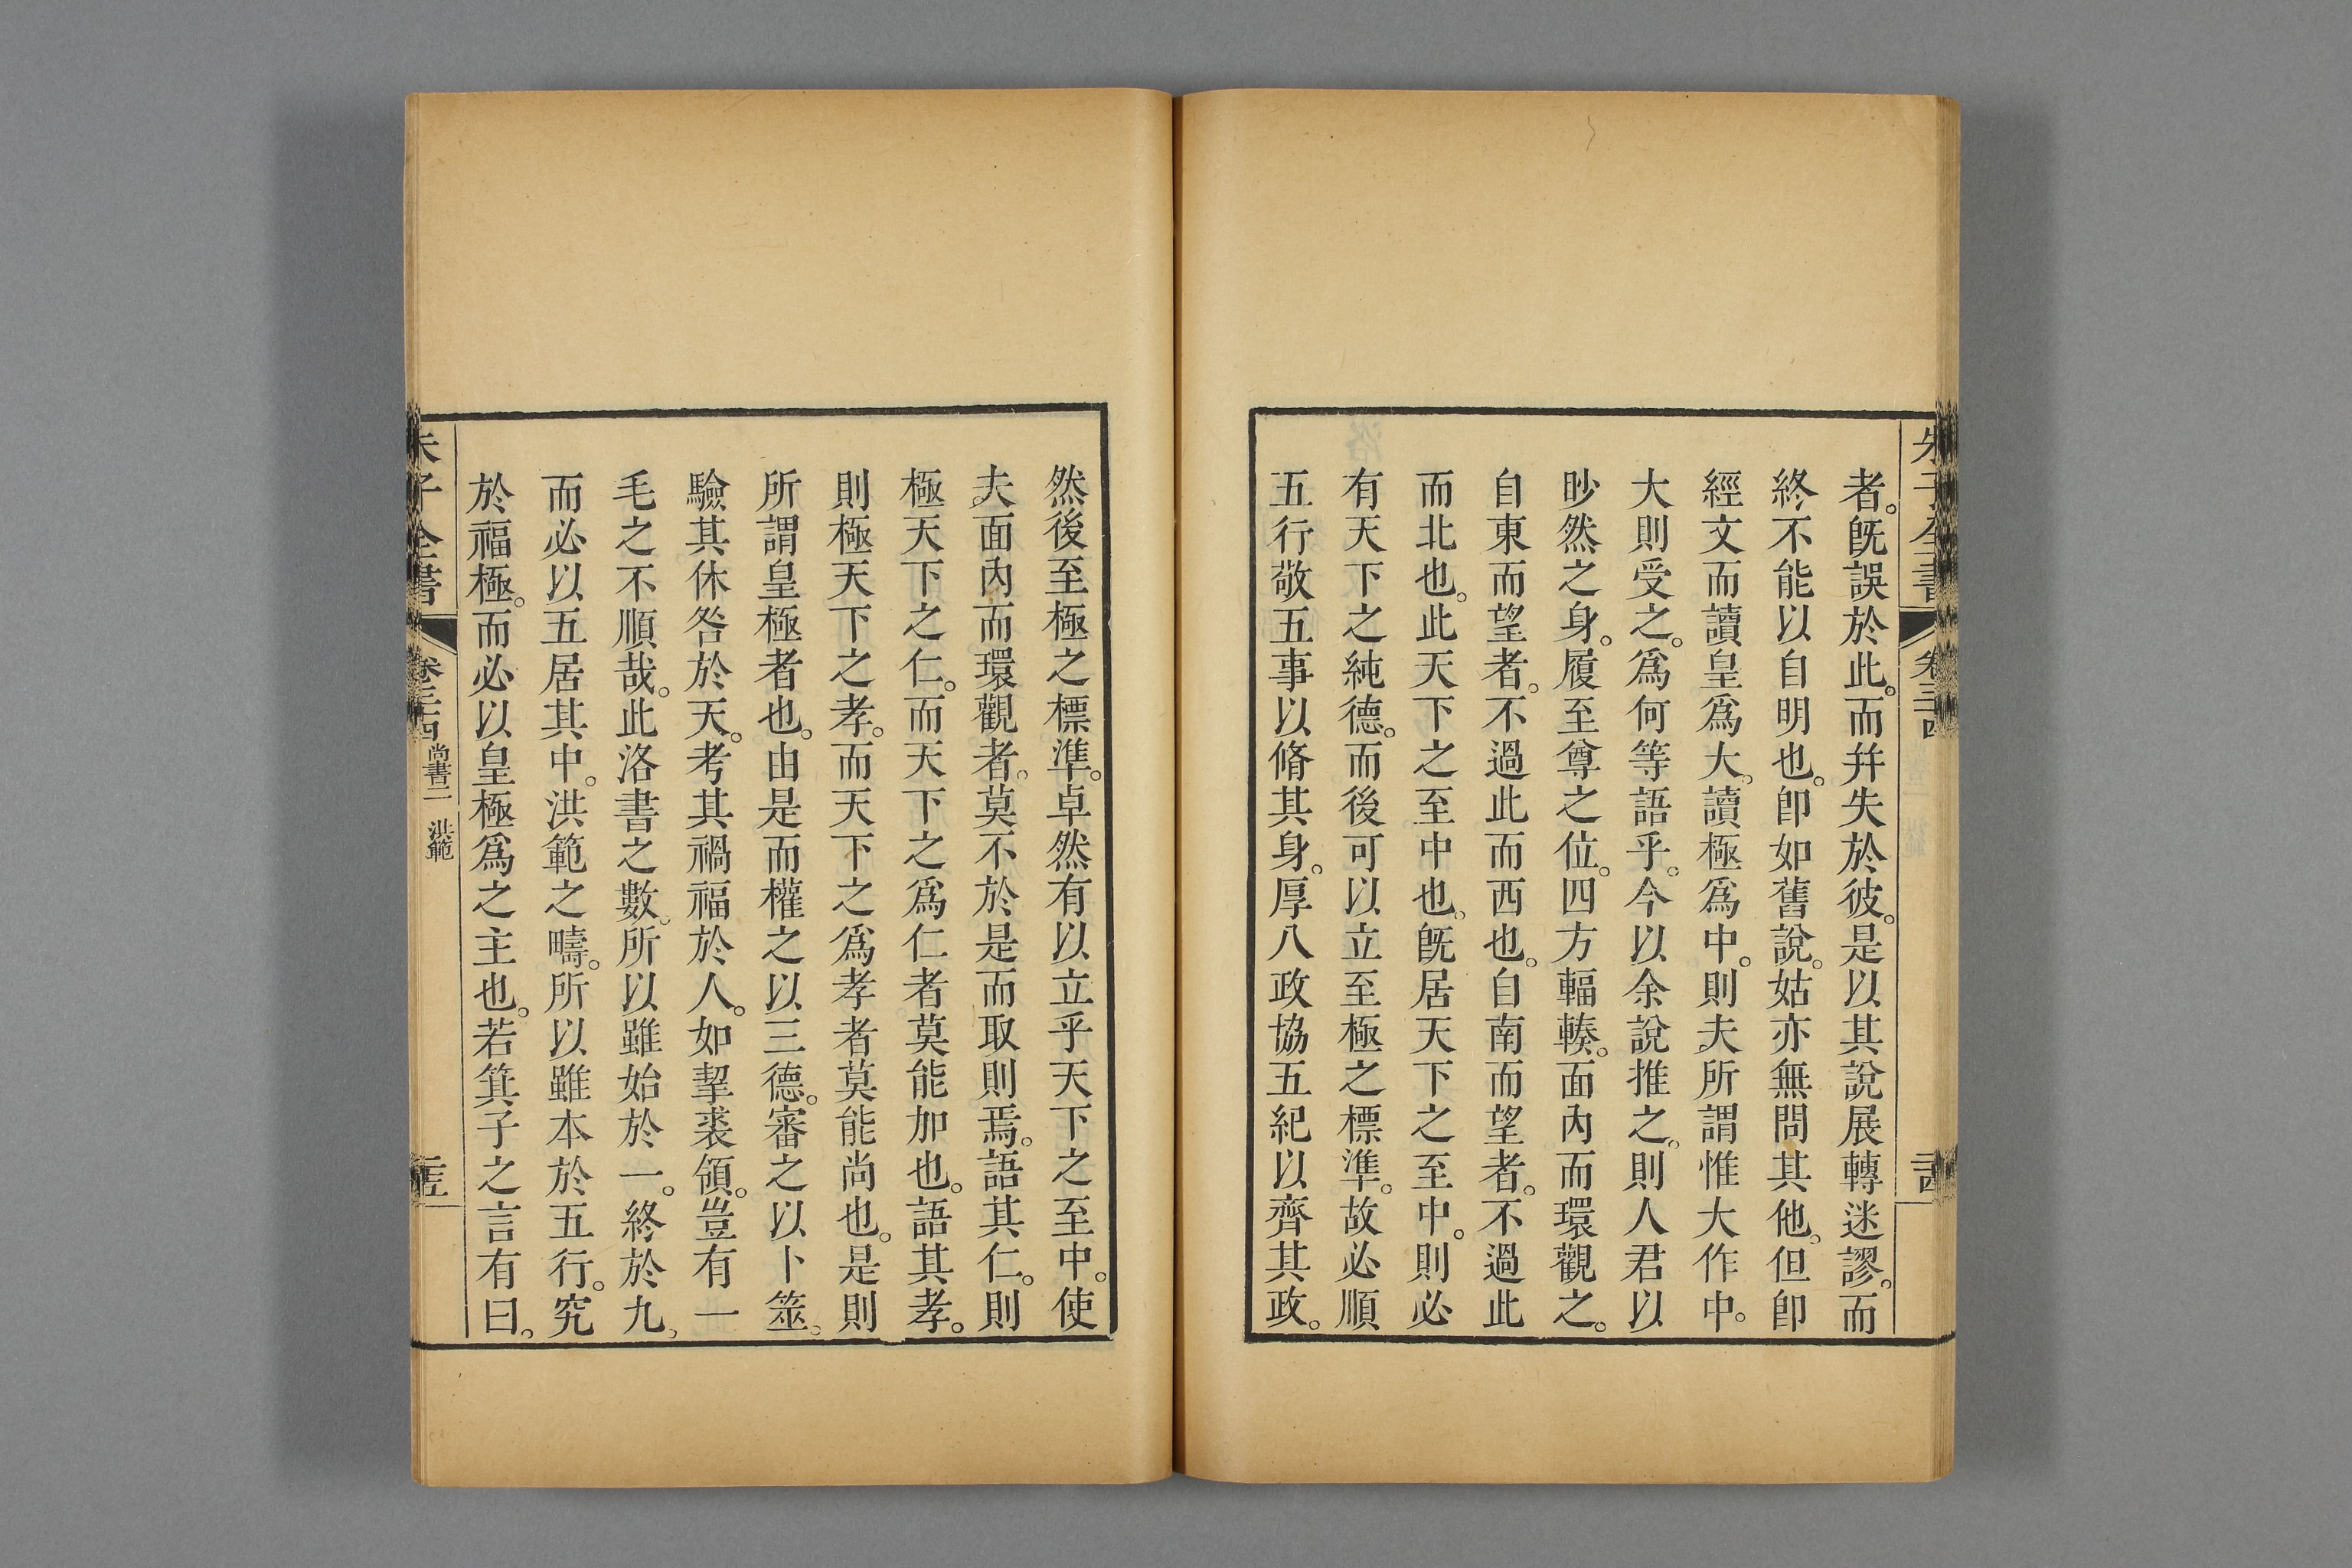 朱子全書
卷三十四
二十四
者。旣誤於此。而幷失於彼。是以其說展轉迷謬。而
終不能以自明也。卽如舊說。姑亦無問其他。但卽
經文而讀皇爲大。讀極爲中。則夫所謂惟大作中。
大則受之。爲何等語乎。今以余說推之。則人君以
眇然之身。履至尊之位。四方輻輳。面內而環觀之。
自東而望者。不過此而西也。自南而望者。不過此
而北也。此天下之至中也。旣居天下之至中。則必
有天下之純德。而後可以立至極之標準。故必順
五行敬五事以脩其身。厚八政協五紀以齊其政。
然後至極之標準。卓然有以立乎天下之至中。使
夫面內而環觀者。莫不於是而取則焉。語其仁。則
極天下之仁。而天下之爲仁者莫能加也。語其孝。
則極天下之孝。而天下之爲孝者莫能尚也。是則
所謂皇極者也。由是而權之以三德。審之以卜筮。
驗其休咎於天。考其禍福於人。如挈裘領。豈有一
毛之不順哉。此洛書之數。所以雖始於一。終於九。
而必以五居其中。洪範之疇。所以雖本於五行。究
於福極。而必以皇極爲之主也。若箕子之言有曰。
朱子全書
卷三十四
尚書二 洪範
二十五